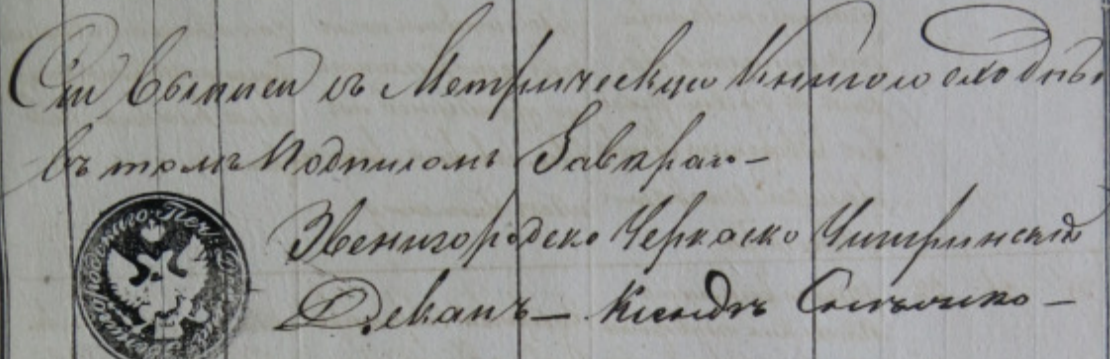 Сіи выписи съ Метрическою Книгою сходны
въ томъ Подписомъ Заверяю—
Звенигородско Черкаско Чигиринскій
Деканъ — Ксендзъ